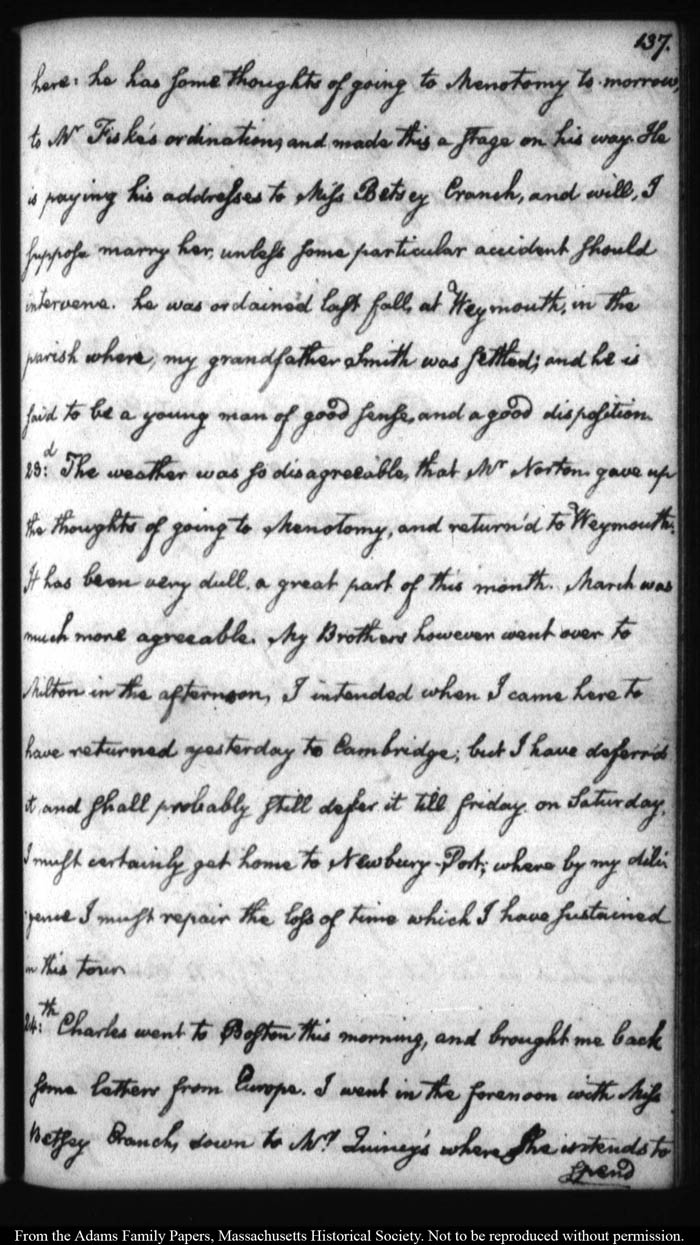 137.
here: he has some thoughts of going to Menotomy to-morrow,
to Mr Fiske's ordination, and made this a stage on his way. He
is paying his addresses to Miss Betsey Cranch, and will, I
suppose marry her, unless some particular accident should
intervene. he was ordained last fall, at Weymouth, in the
parish where, my grandfather Smith was settled; and he is
said to be a young man of good sense, and a good disposition.
23:d The weather was so disagreeable, that Mr Norton gave up
the thoughts of going to Menotomy, and return'd to Weymouth.
It has been very dull, a great part of this month. March was
much more agreeable. My Brothers however went over to
Milton in the afternoon, I intended when I came here to
have returned yesterday to Cambridge; but I have deferr'd
it, and shall probably still defer it till friday. on Saturday,
I must certainly get home to Newbury-Port; where by my dili-
gence I must repair the loss of time which I have sustained
in this tour.
24:th Charles went to Boston this morning, and brought me back
some letters from Europe. I went in the forenoon with Miss
Betsey Cranch, down to Mrs Quincy's where she intends to
spend
From the Adams Family Papers, Massachusetts Historical Society. Not to be reproduced without permission.